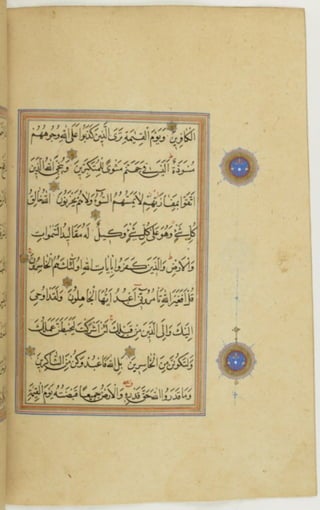 الكَافِرِينَ وَيَوْمَ الْقِيٰمَةِ تَرَى الَّذِينَ كَذَبُوا عَلَى اللهِ وُجُوهُهُمْ
مُسْوَدَّةٌ أَلَيْسَ فِي جَهَنَّمَ مَثْوًى لِلْمُتَكَبِّرِينَ وَيُنَجِّي اللهُ الَّذِينَ
اتَّقَوْا بِمَفَازَتِهِمْ لَا يَمَسُّهُمُ السُّوءُ وَلَا هُمْ يَحْزَنُونَ اللهُ خَالِقُ
كُلِّ شَيْءٍ وَهُوَ عَلَى كُلِّ شَيْءٍ وَكِيلٌ لَهُ مَقَالِيدُ السَّمٰوَاتِ
وَالْأَرْضِ وَالَّذِينَ كَفَرُوا بِآيَاتِ اللهِ أُولٰئِكَ هُمُ الْخَاسِرُونَ
قُلْ أَفَغَيْرَ اللهِ تَأْمُرُونِّي أَعْبُدُ أَيُّهَا الْجَاهِلُونَ وَلَقَدْ أُوحِيَ
إِلَيْكَ وَإِلَى الَّذِينَ مِنْ قَبْلِكَ لَئِنْ أَشْرَكْتَ لَيَحْبَطَنَّ عَمَلُكَ
وَلَتَكُونَنَّ مِنَ الْخَاسِرِينَ بَلِ اللهَ فَاعْبُدْ وَكُنْ مِنَ الشَّاكِرِينَ
وَمَا قَدَرُوا اللهَ حَقَّ قَدْرِهِ وَالْأَرْضُ جَمِيعًا قَبْضَتُهُ يَوْمَ الْقِيٰمَةِ